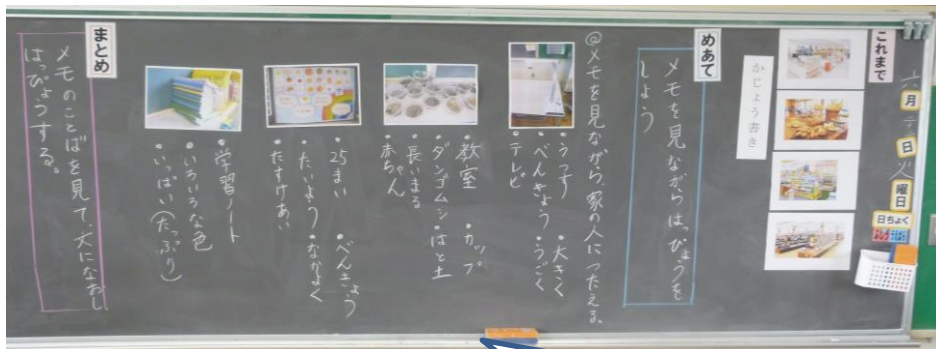 六月
日
火
曜日
日ちょく
これまで
かじょう書き
めあて
メモを見ながらはっぴょうを
しよう
@メモを見ながら、家の人につたえる。
・うつす ・大きく
・べんきょう ・うごく
・テレビ
・教室 ・カップ
・ダンゴムシ ・はと土
・長いまる
・赤ちゃん
・25まい ・べんきょう
・たいよう ・なかよく
・たすけあい
・学習ノート
・いろいろな色
・いっぱい(たっぷり)
まとめ
メモのことばを見て、文になおし
はっぴょうする。